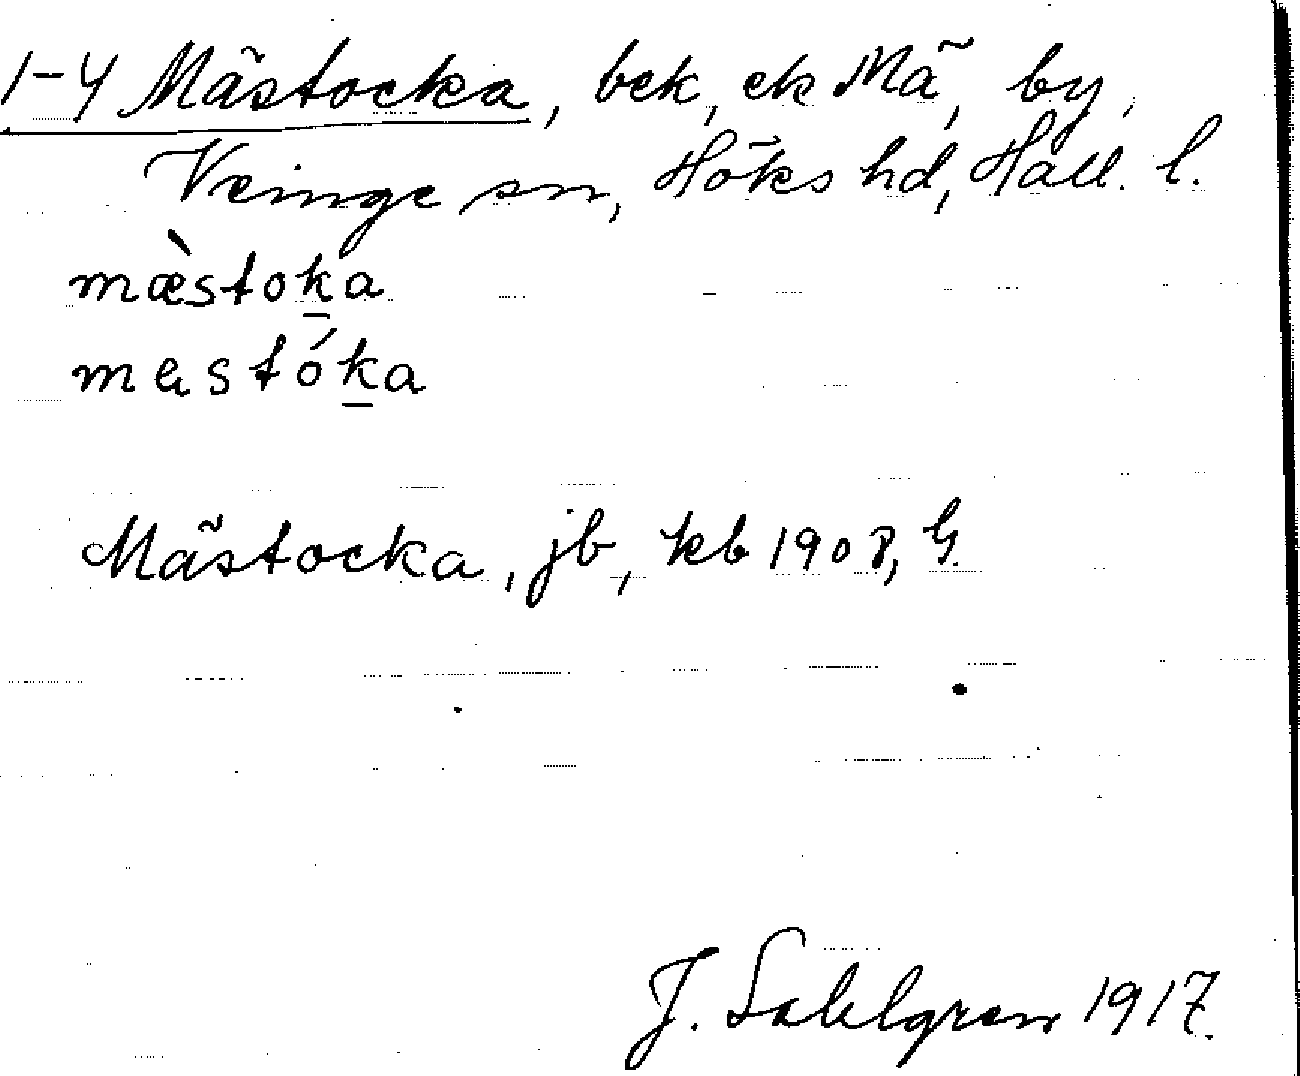 1-4 Mästocka, bek, ek Mä, by,
Veinge sn, Höks hd, Hall. l.
mæ̀stoḵa
mɐstóḵa
Mästocka, jb, kb 1908, G.
J. Sahlgren 1917.